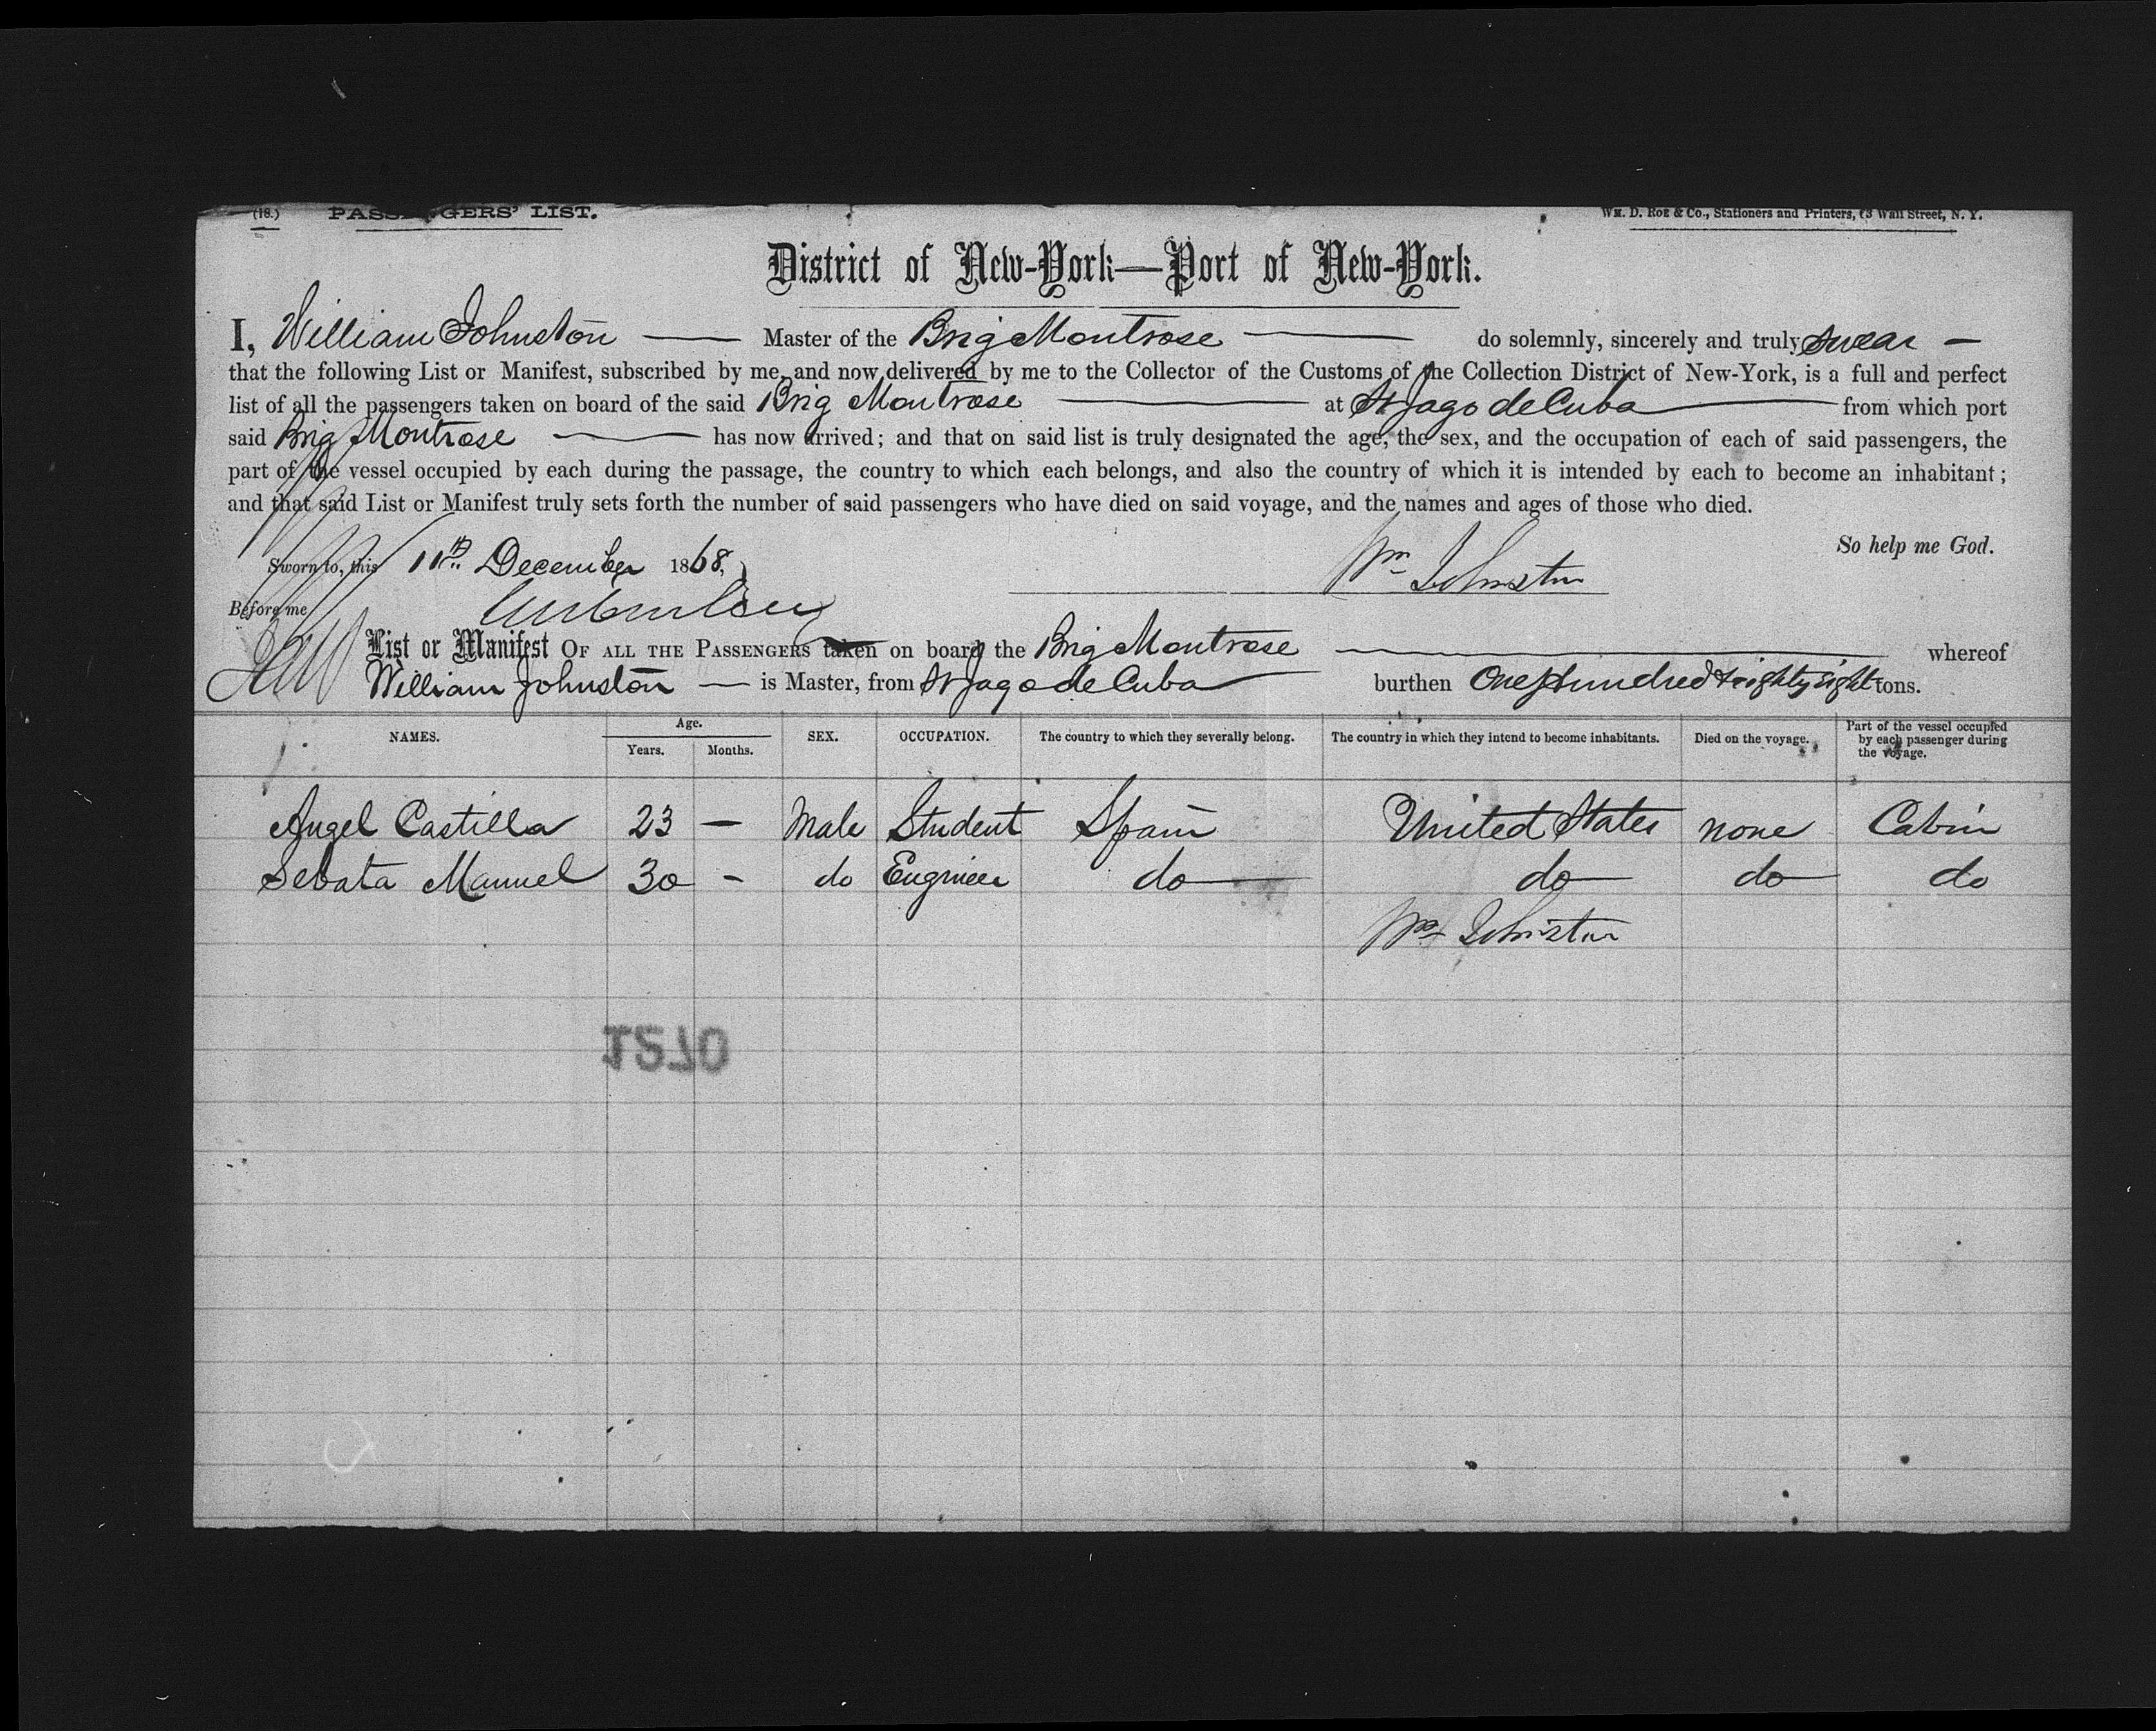 (18.) PASSENGERS' LIST. WM. D. ROE & Co., Stationers and Printers, 73 Wall Street, N. Y.
District of New-York—Port of New-York.
I, William Johnston — Master of the Brig Montrose — do solemnly, sincerely and truly swear —
that the following List or Manifest, subscribed by me, and now delivered by me to the Collector of the Customs of the Collection District of New-York, is a full and perfect
list of all the passengers taken on board of the said Brig Montrose — at St Jago de Cuba — from which port
said Brig Montrose — has now arrived; and that on said list is truly designated the age, the sex, and the occupation of each of said passengers, the
part of the vessel occupied by each during the passage, the country to which each belongs, and also the country of which it is intended by each to become an inhabitant;
and that said List or Manifest truly sets forth the number of said passengers who have died on said voyage, and the names and ages of those who died.
So help me God.
Sworn to, this 11th December 1868, Wm Johnston
Before me
List or Manifest OF ALL THE PASSENGERS taken on board the Brig Montrose — whereof
William Johnston — is Master, from St Jago de Cuba burthen One Hundred & eighty eight tons.
NAMES. Age. Years. Months. SEX. OCCUPATION. The country to which they severally belong. The country in which they intend to become inhabitants. Died on the voyage. Part of the vessel occupied by each passenger during the voyage.
Angel Castilla 23 — Male Student Spain United States none Cabin
Sebata Manuel 30 - do Engineer do do do do
Wm Johnston
1570